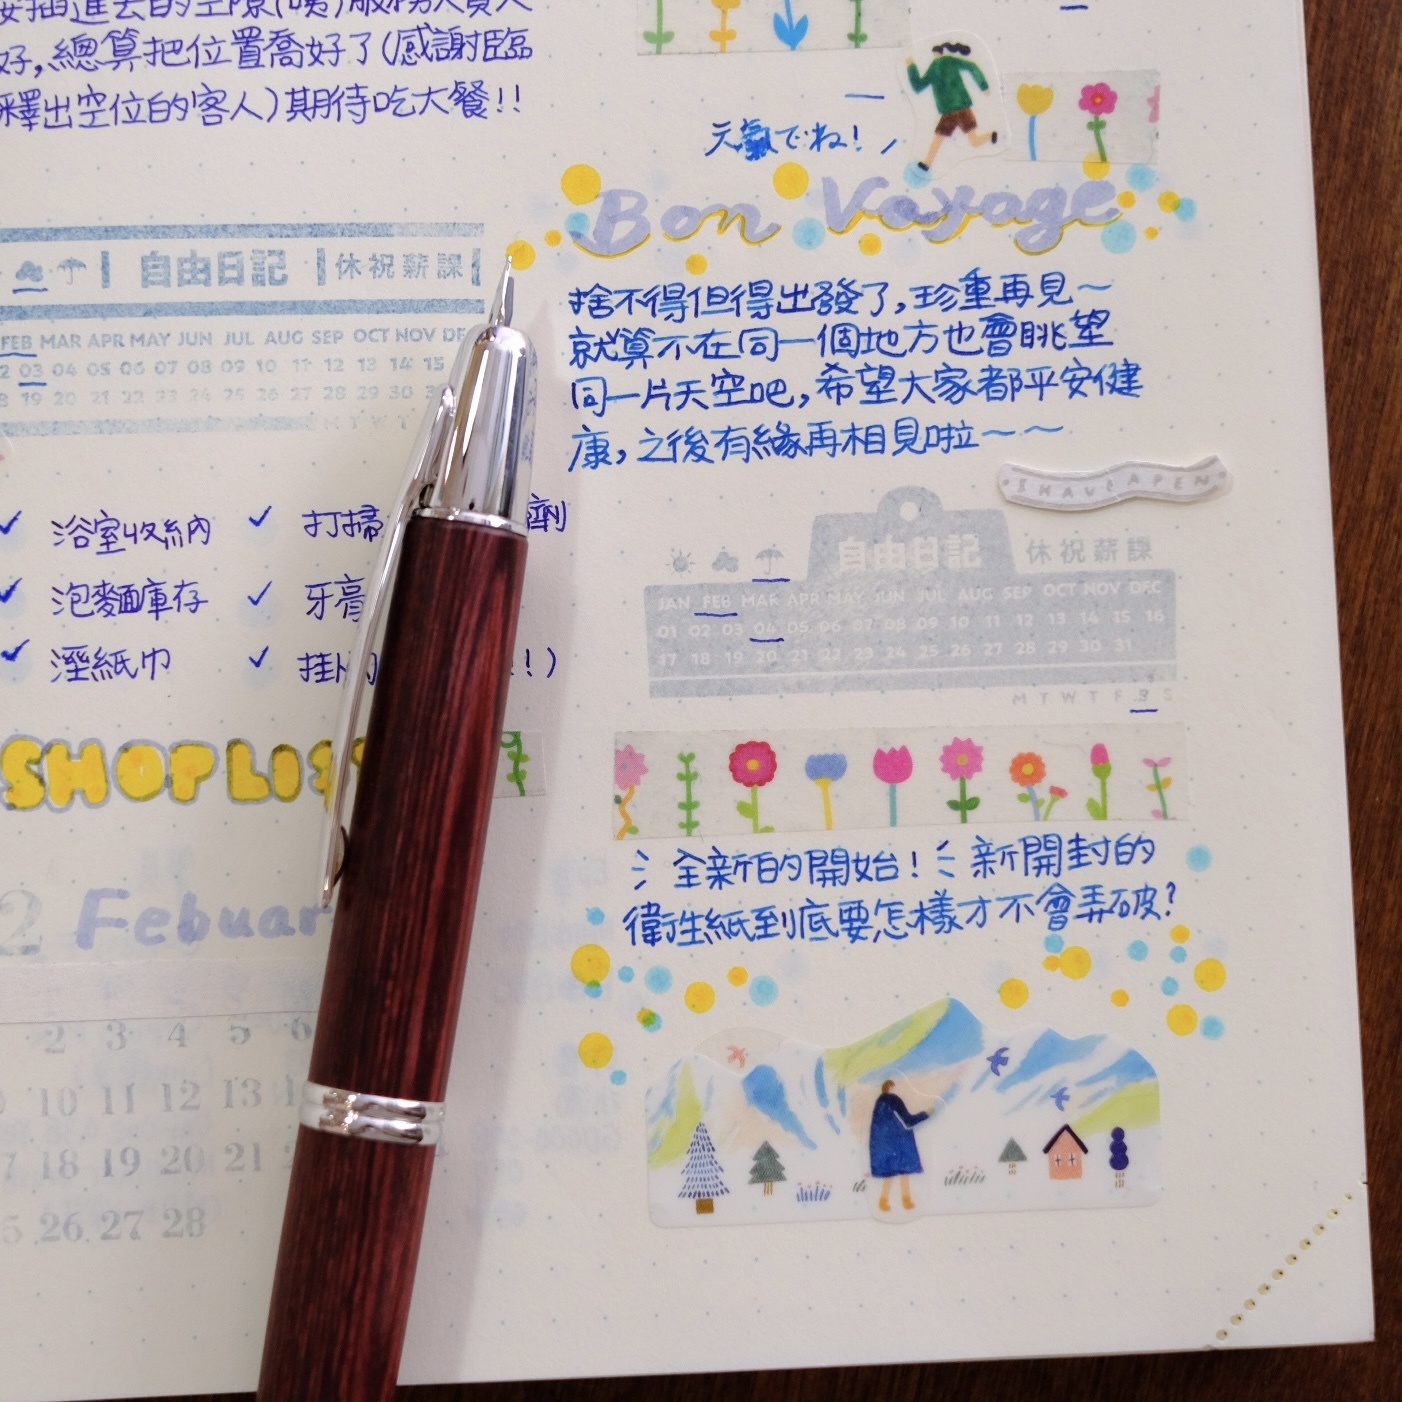 好,總算把位置喬好了(感謝臨
釋出空位的客人)期待吃大餐!!
自由日記
休祝薪課
FEB MAR APR MAY JUN JUL AUG SEP OCT NOV DE
2 03 04 05 06 07 08 09 10 11 12 13 14 15
8 19 20 21 22 23 24 25 26 27 28 29 30 3
M T W T F
✓ 浴室收納 ✓ 打掃 劑
✓ 泡麵庫存 ✓ 牙膏
✓ 溼紙巾 ✓ 掛 !)
SHOPLIS
2 Febuar
2 3 4 5 6
10 11 12 13
7 18 19 20 21
5 26 27 28
元氣でね!
Bon Vayage
捨不得但得出發了,珍重再見~
就算不在同一個地方也會眺望
同一片天空吧,希望大家都平安健
康,之後有緣再相見啦~~
I HAVE A PEN
自由日記
休祝薪課
JAN FEB MAR APR MAY JUN JUL AUG SEP OCT NOV DEC
01 02 03 04 05 06 07 08 09 10 11 12 13 14 15 16
17 18 19 20 21 22 23 24 25 26 27 28 29 30 31
M T W T F S S
全新的開始! 新開封的
衛生紙到底要怎樣才不會弄破?